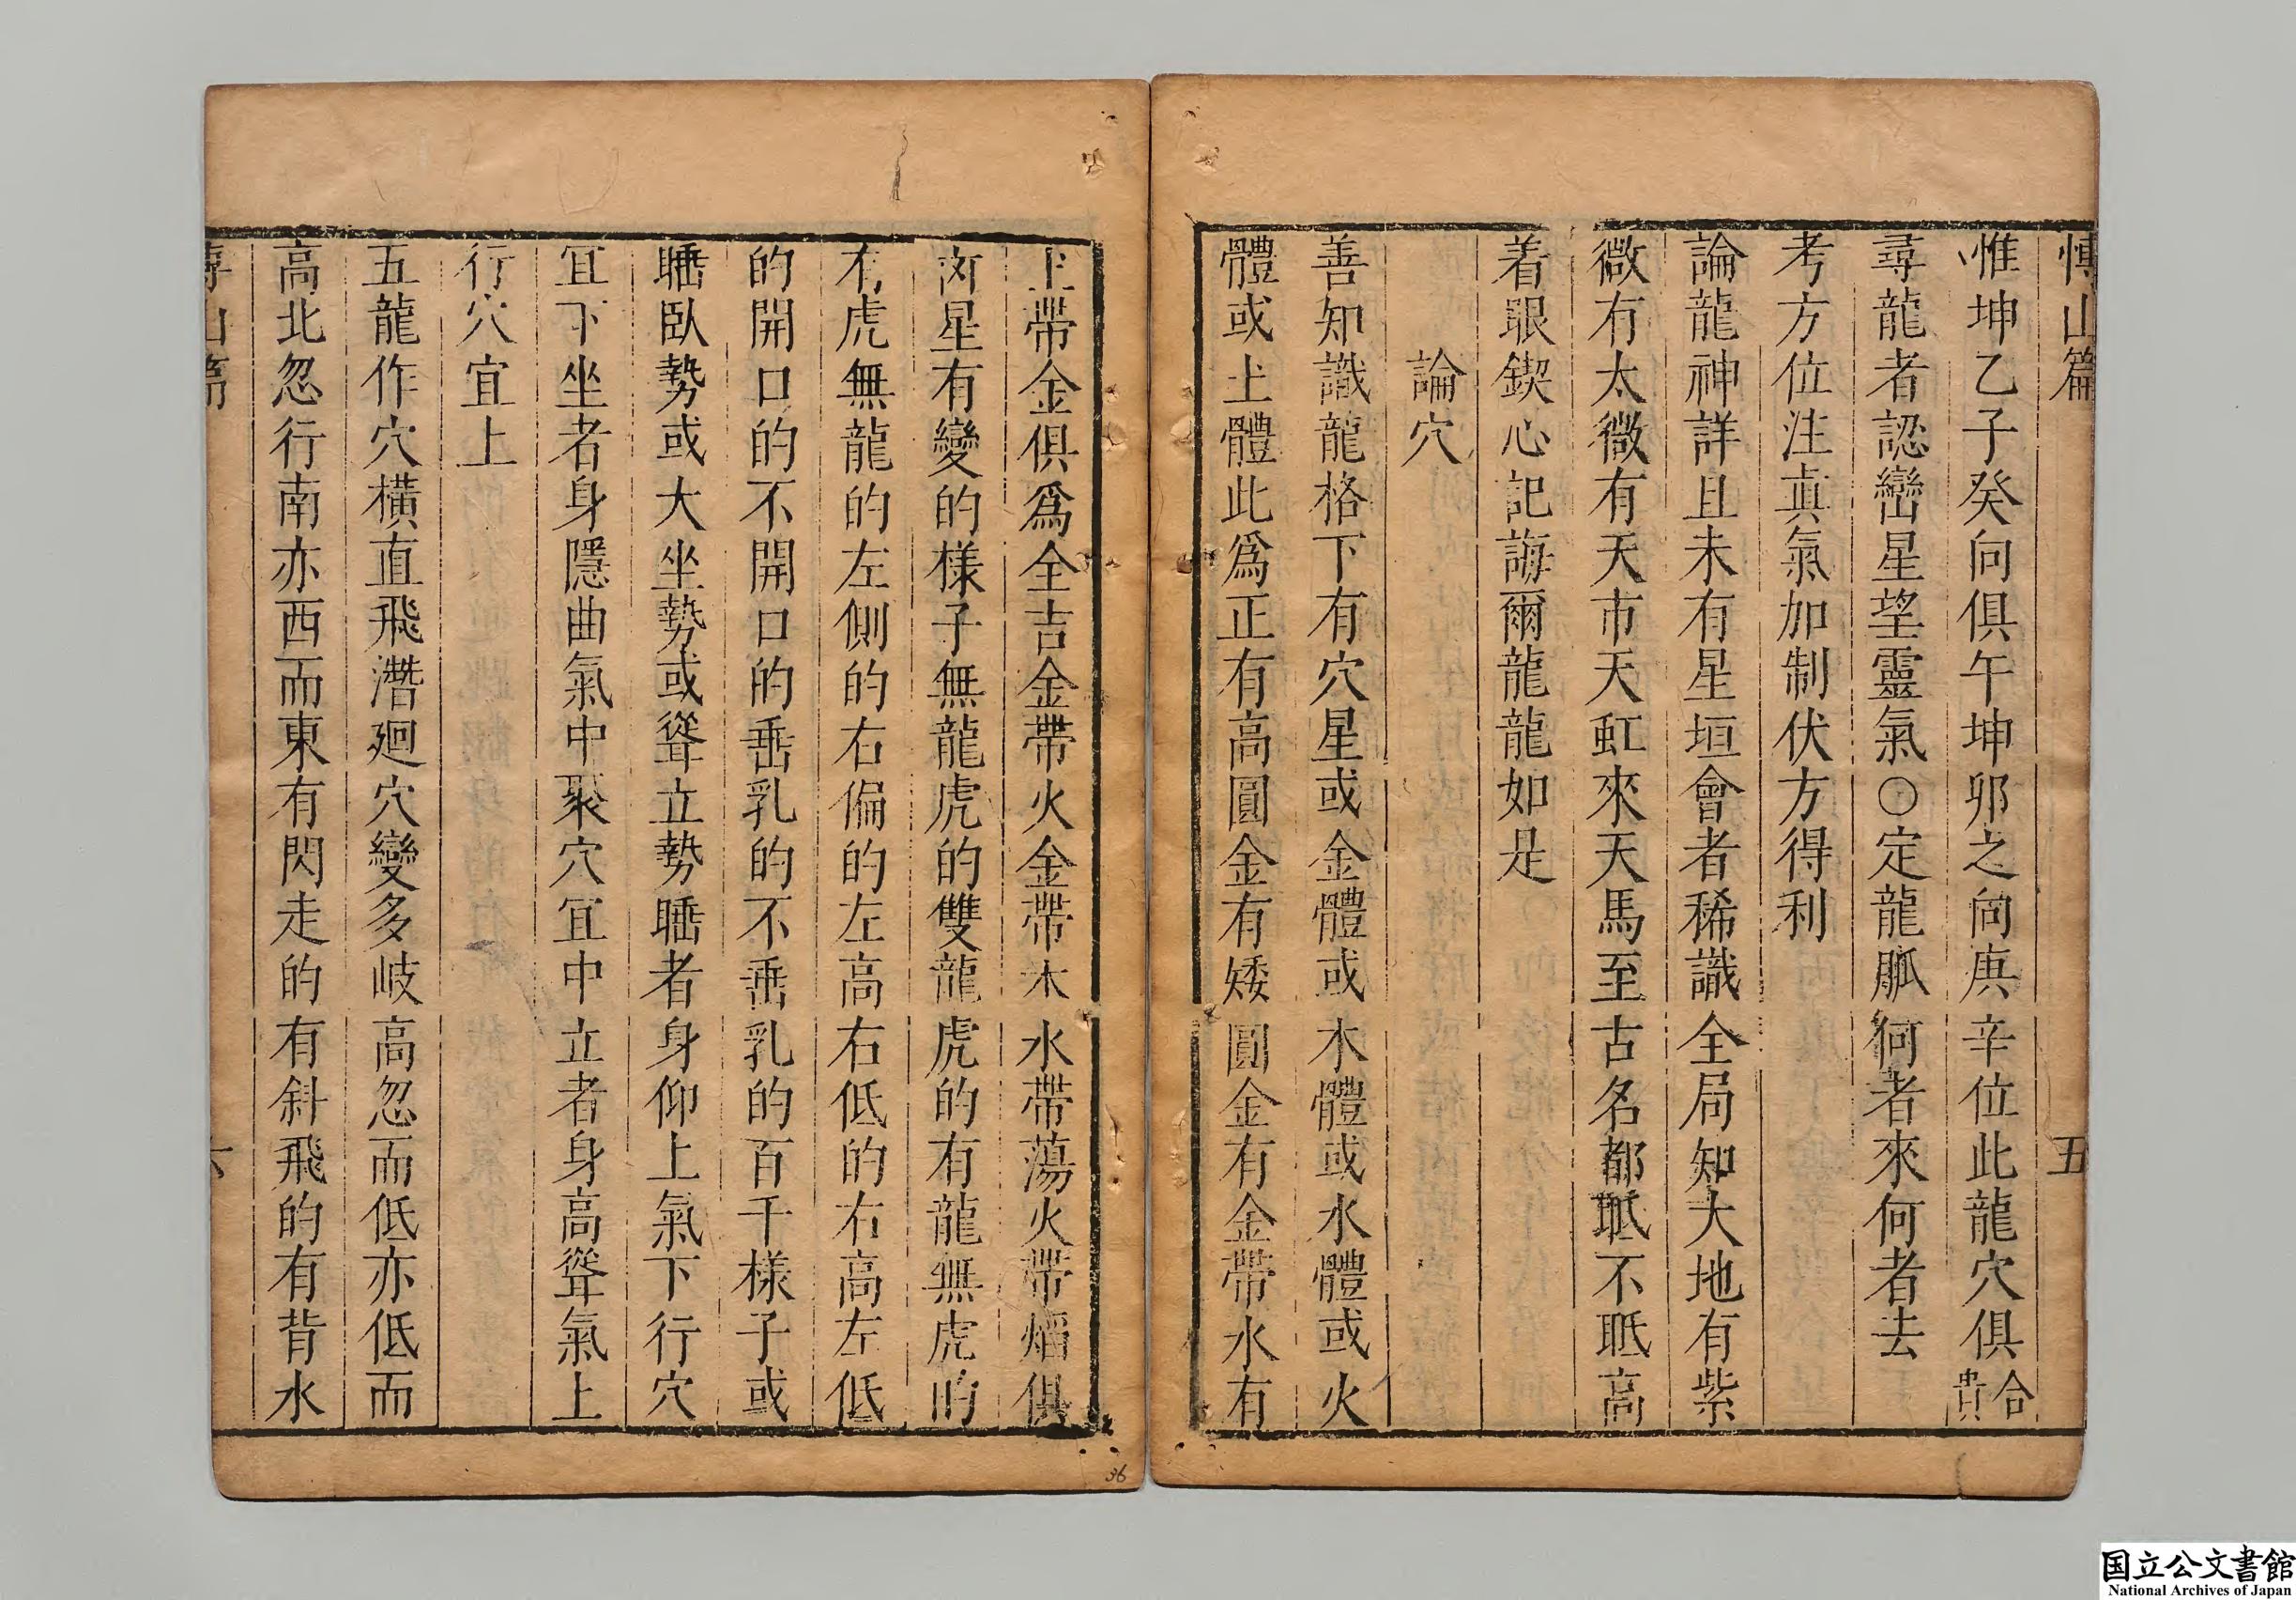 博山篇 五
惟坤乙子癸向俱午坤卯之向庚辛位此龍穴俱合貴
尋龍者認巒星望靈氣○定龍脈何者來何者去
考方位注眞氣加制伏方得利
論龍神詳且未有星垣會者稀識全局知大地有紫
微有太微有天市天虹來天馬至古名都眡不眡高
着眼鍥心記誨爾龍龍龍如是
論穴
善知識龍格下有穴星或金體或木體或水體或火
體或土體此爲正有高圓金有矮圓金有金帶水有
土帶金俱爲全吉金帶火金帶木水帶蕩火帶熖俱
凶星有變的樣子無龍虎的雙龍虎的有龍無虎的
有虎無龍的左側的右偏的左高右低的右高左低
的開口的不開口的垂乳的不垂乳的百千樣子或
睡臥勢或大坐勢或聳立勢睡者身仰上氣下行穴
宜下坐者身隱曲氣中聚穴宜中立者身高聳氣上
行穴宜上
五龍作穴橫直飛濳廻穴變多岐高忽而低亦低而
高北忽行南亦西而東有閃走的有斜飛的有背水
博山篇 六
36
国立公文書館
National Archives of Japan